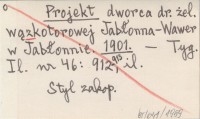 Projekt dworca dr. żel.
wązkotorowej Jabłonna-Wawer
w Jabłonnie. 1901. — Tyg.
Il. nr 46: 912, il.
Styl zakop.